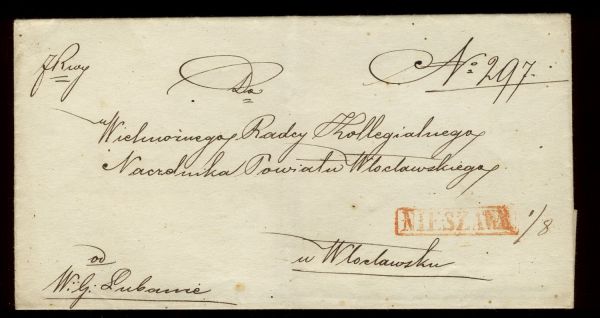 Do
No 297.
Wielmożnego Radcy Kollegialnego
Naczelnika Powiatu Włocławskiego
NIESZAWA 1/8
w Włocławsku
od
W: G: Lubanie